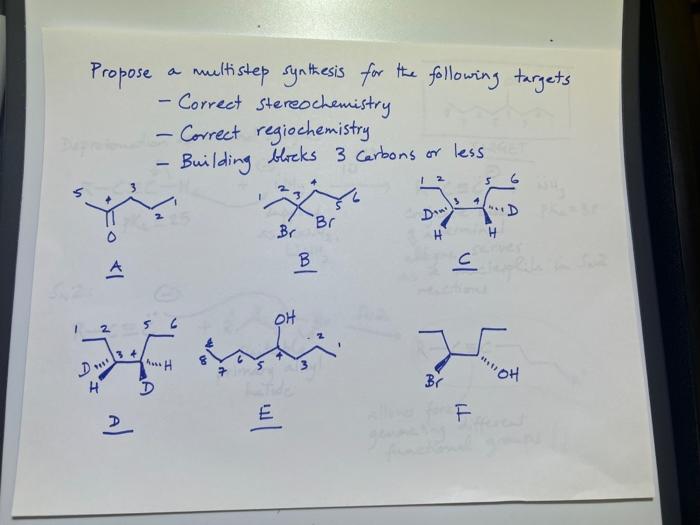 Propose a multistep synthesis for the following targets
- Correct stereochemistry
- Correct regiochemistry
- Building blocks 3 carbons or less
5 4 3 2 1
O
A
1 2 3 4 5 6
Br Br
B
1 2 3 4 5 6
D D
H H
C
1 2 3 4 5 6
D H
H D
D
OH
8 7 6 5 4 3 2 1
E
Br OH
F